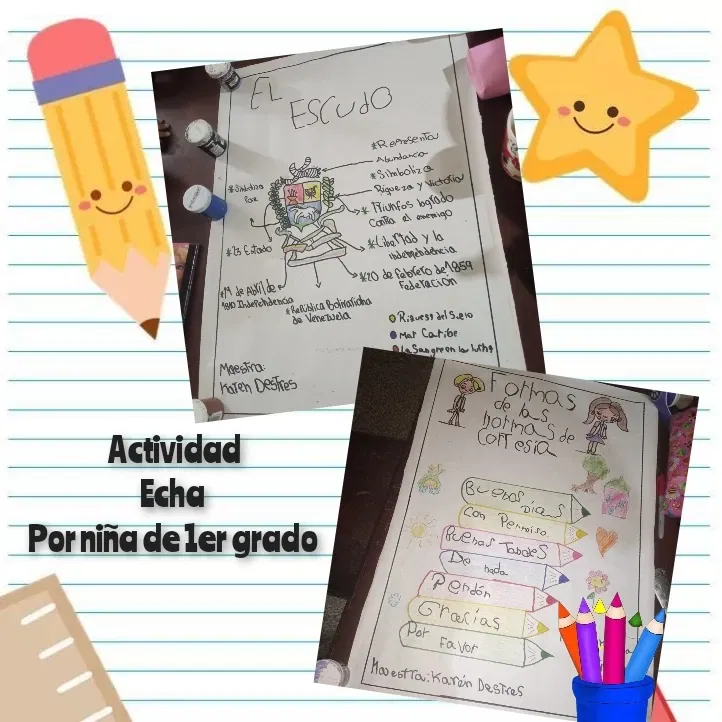 EL
ESCUDO
*Representa
Abundancia
*Simboliza
Riqueza y Victoria
* Triunfos logrado
Contra el enemigo
*Libertad y la
independencia
*20 de febrero de 1859
Federación
*Simboliza
Paz
*23 Estado
*19 de Abril de
1810 Independencia
*República Bolivariana
de Venezuela
Riquesa del Suelo
Mar Caribe
La Sangre en la lucha
Maestra:
Karen Destres
Formas
de las
normas de
Cortesia
Buenos Dias
Con Permiso
Buenas Tardes
De nada
Perdón
Gracias
Por Favor
Maestra: Karen Destres
Actividad
Echa
Por niña de 1er grado